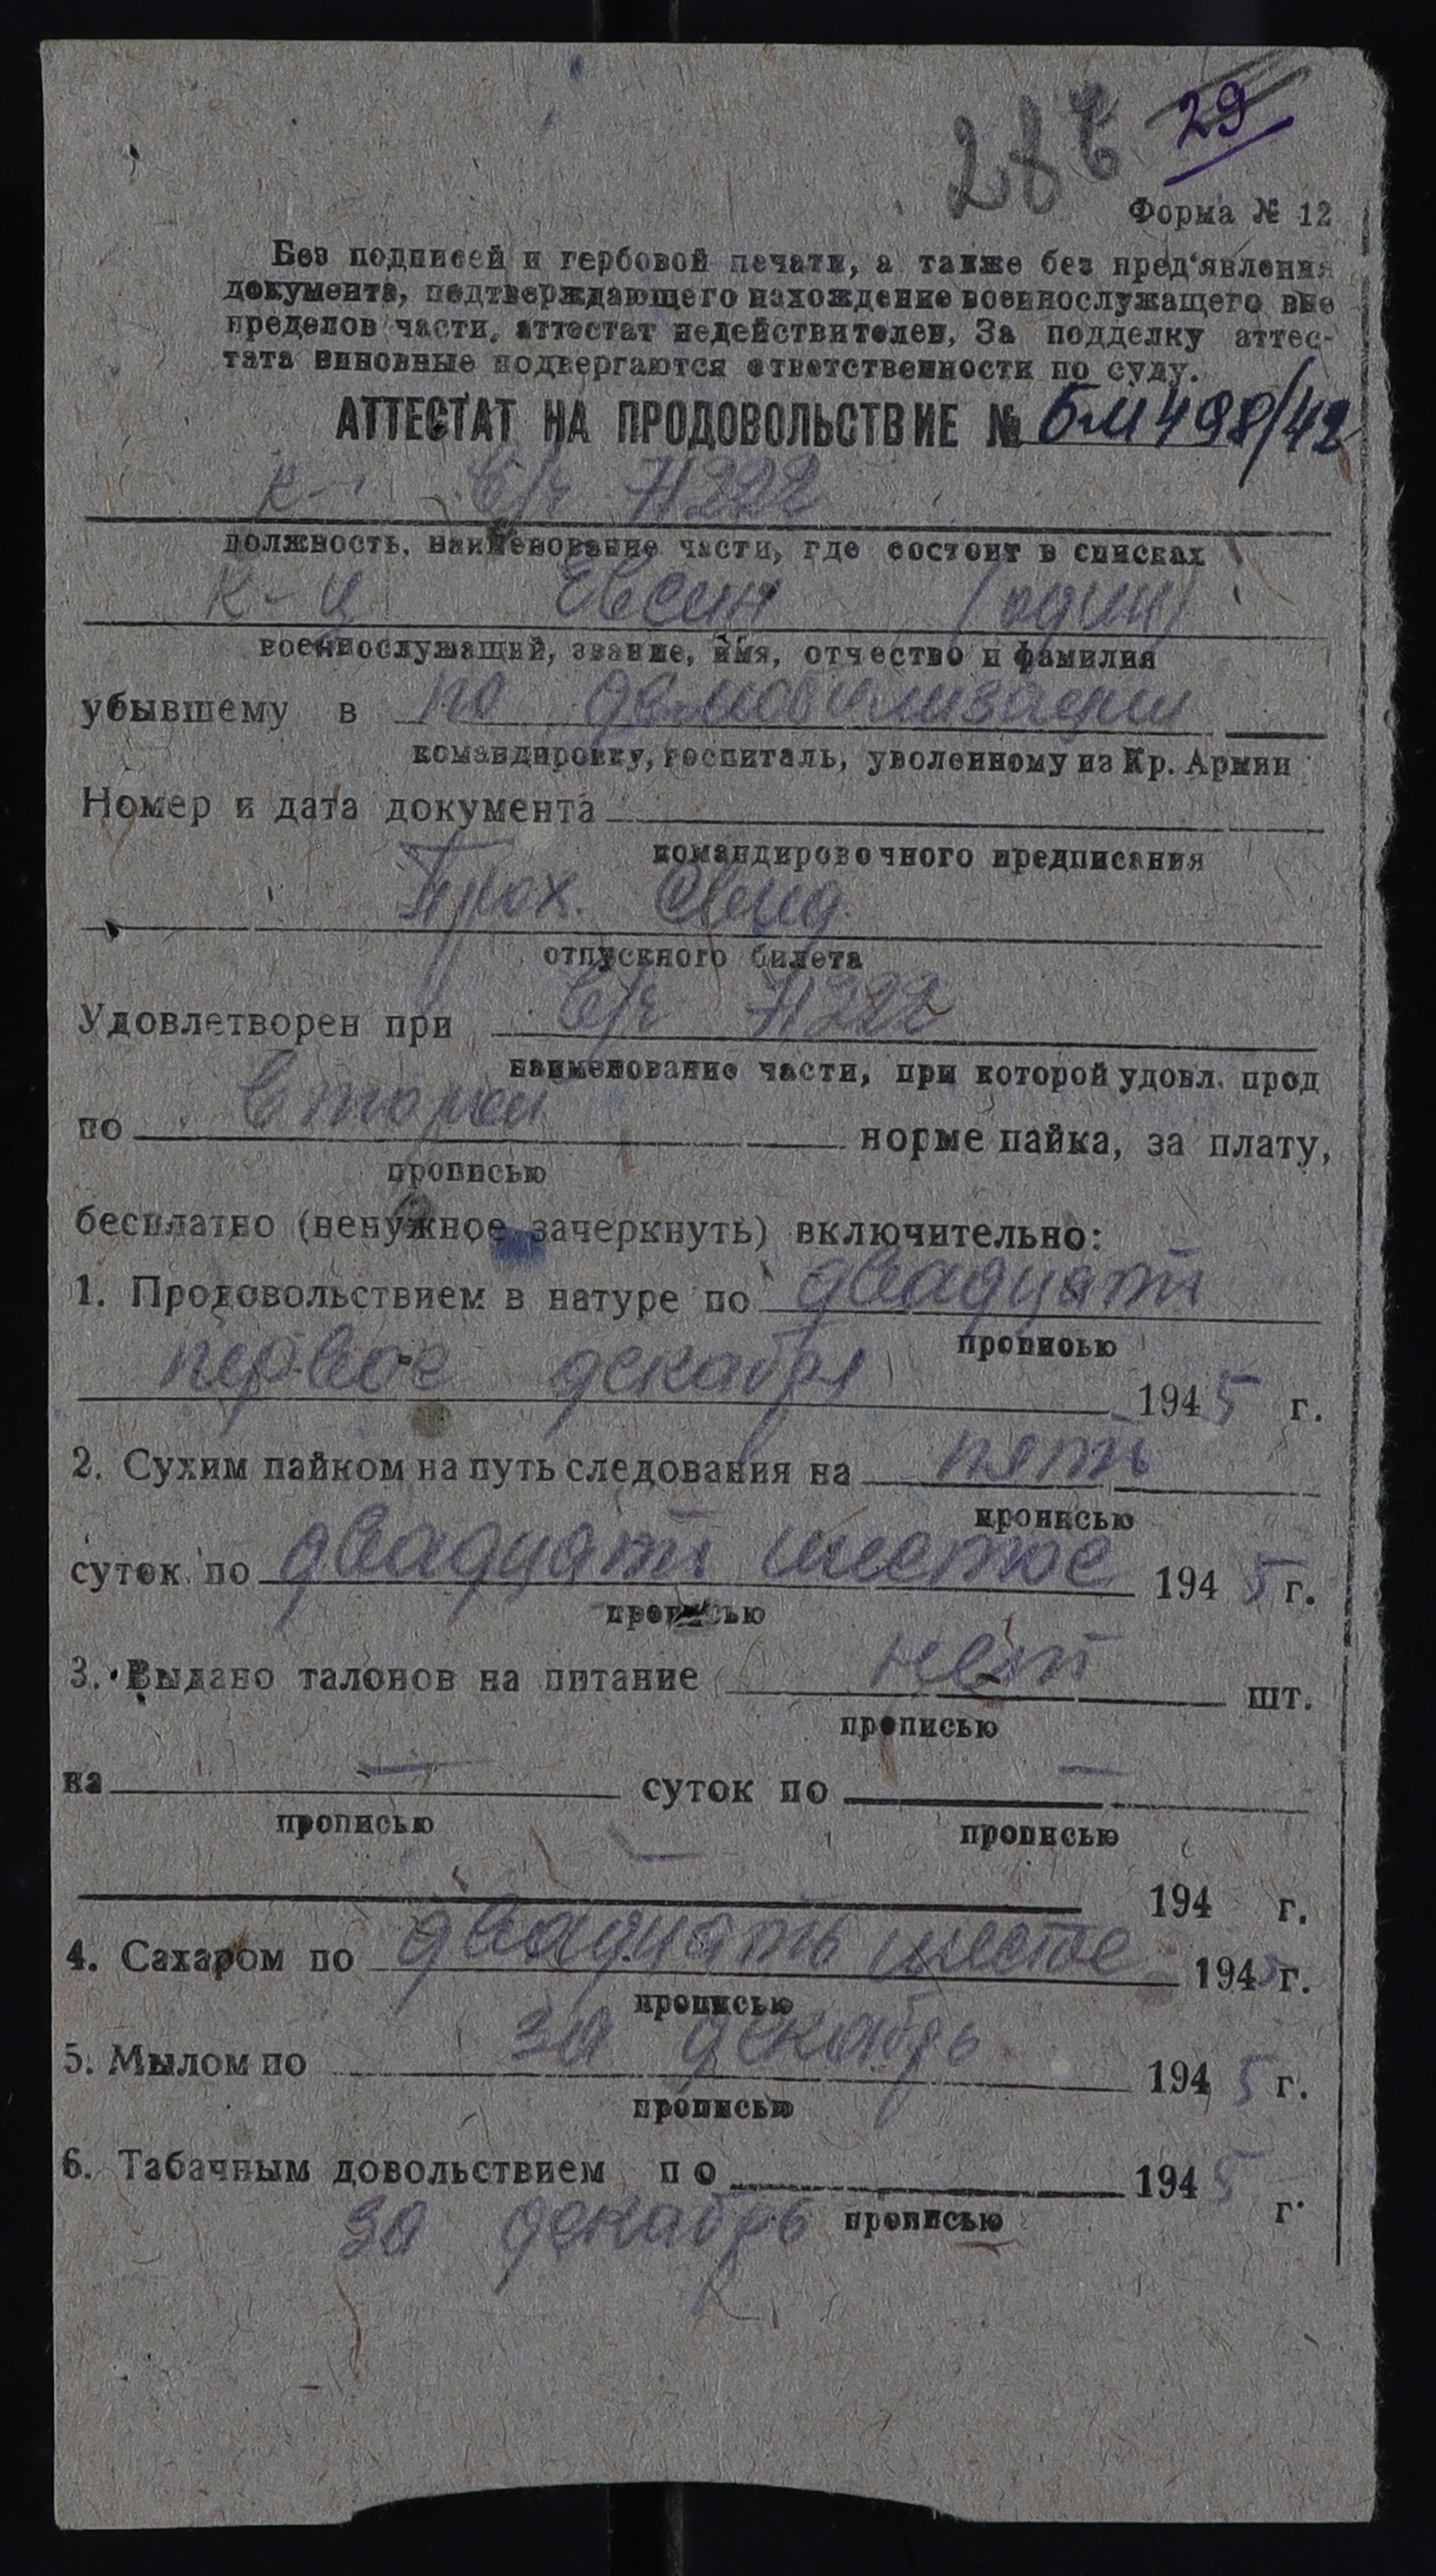 29
Форма № 12
Без подписей и гербовой печати, а также без пред'явления
документа, подтверждающего нахождение военнослужащего вне
пределов части, аттестат недействителен, За подделку аттес-
тата виновные подвергаются ответственности по суду.
АТТЕСТАТ НА ПРОДОВОЛЬСТВИЕ № БМ 498/42
В/ч 71222
должность, наименование части, где состоит в списках
к-ц Евсин (один)
военнослужащий, звание, имя, отчество и фамилия
убывшему в по демобилизации
командировку, госпиталь, уволенному из Кр. Армии
Номер и дата документа
командировочного предписания
Прох. Свид.
отпускного билета
Удовлетворен при В/ч 71222
наименование части, при которой удовл. прод
по второй норме пайка, за плату,
прописью
бесплатно (ненужное зачеркнуть) включительно:
1. Продовольствием в натуре по двадцать
прописью
первое декабря 1945 г.
2. Сухим пайком на путь следования на пять
прописью
суток по двадцать шестое 1945 г.
прописью
3. Выдано талонов на питание нет шт.
прописью
на — суток по —
прописью прописью
— 194 г.
4. Сахаром по двадцать шестое 1945 г.
прописью
5. Мылом по за декабрь 1945 г.
прописью
6. Табачным довольствием по 1945 г.
за декабрь прописью